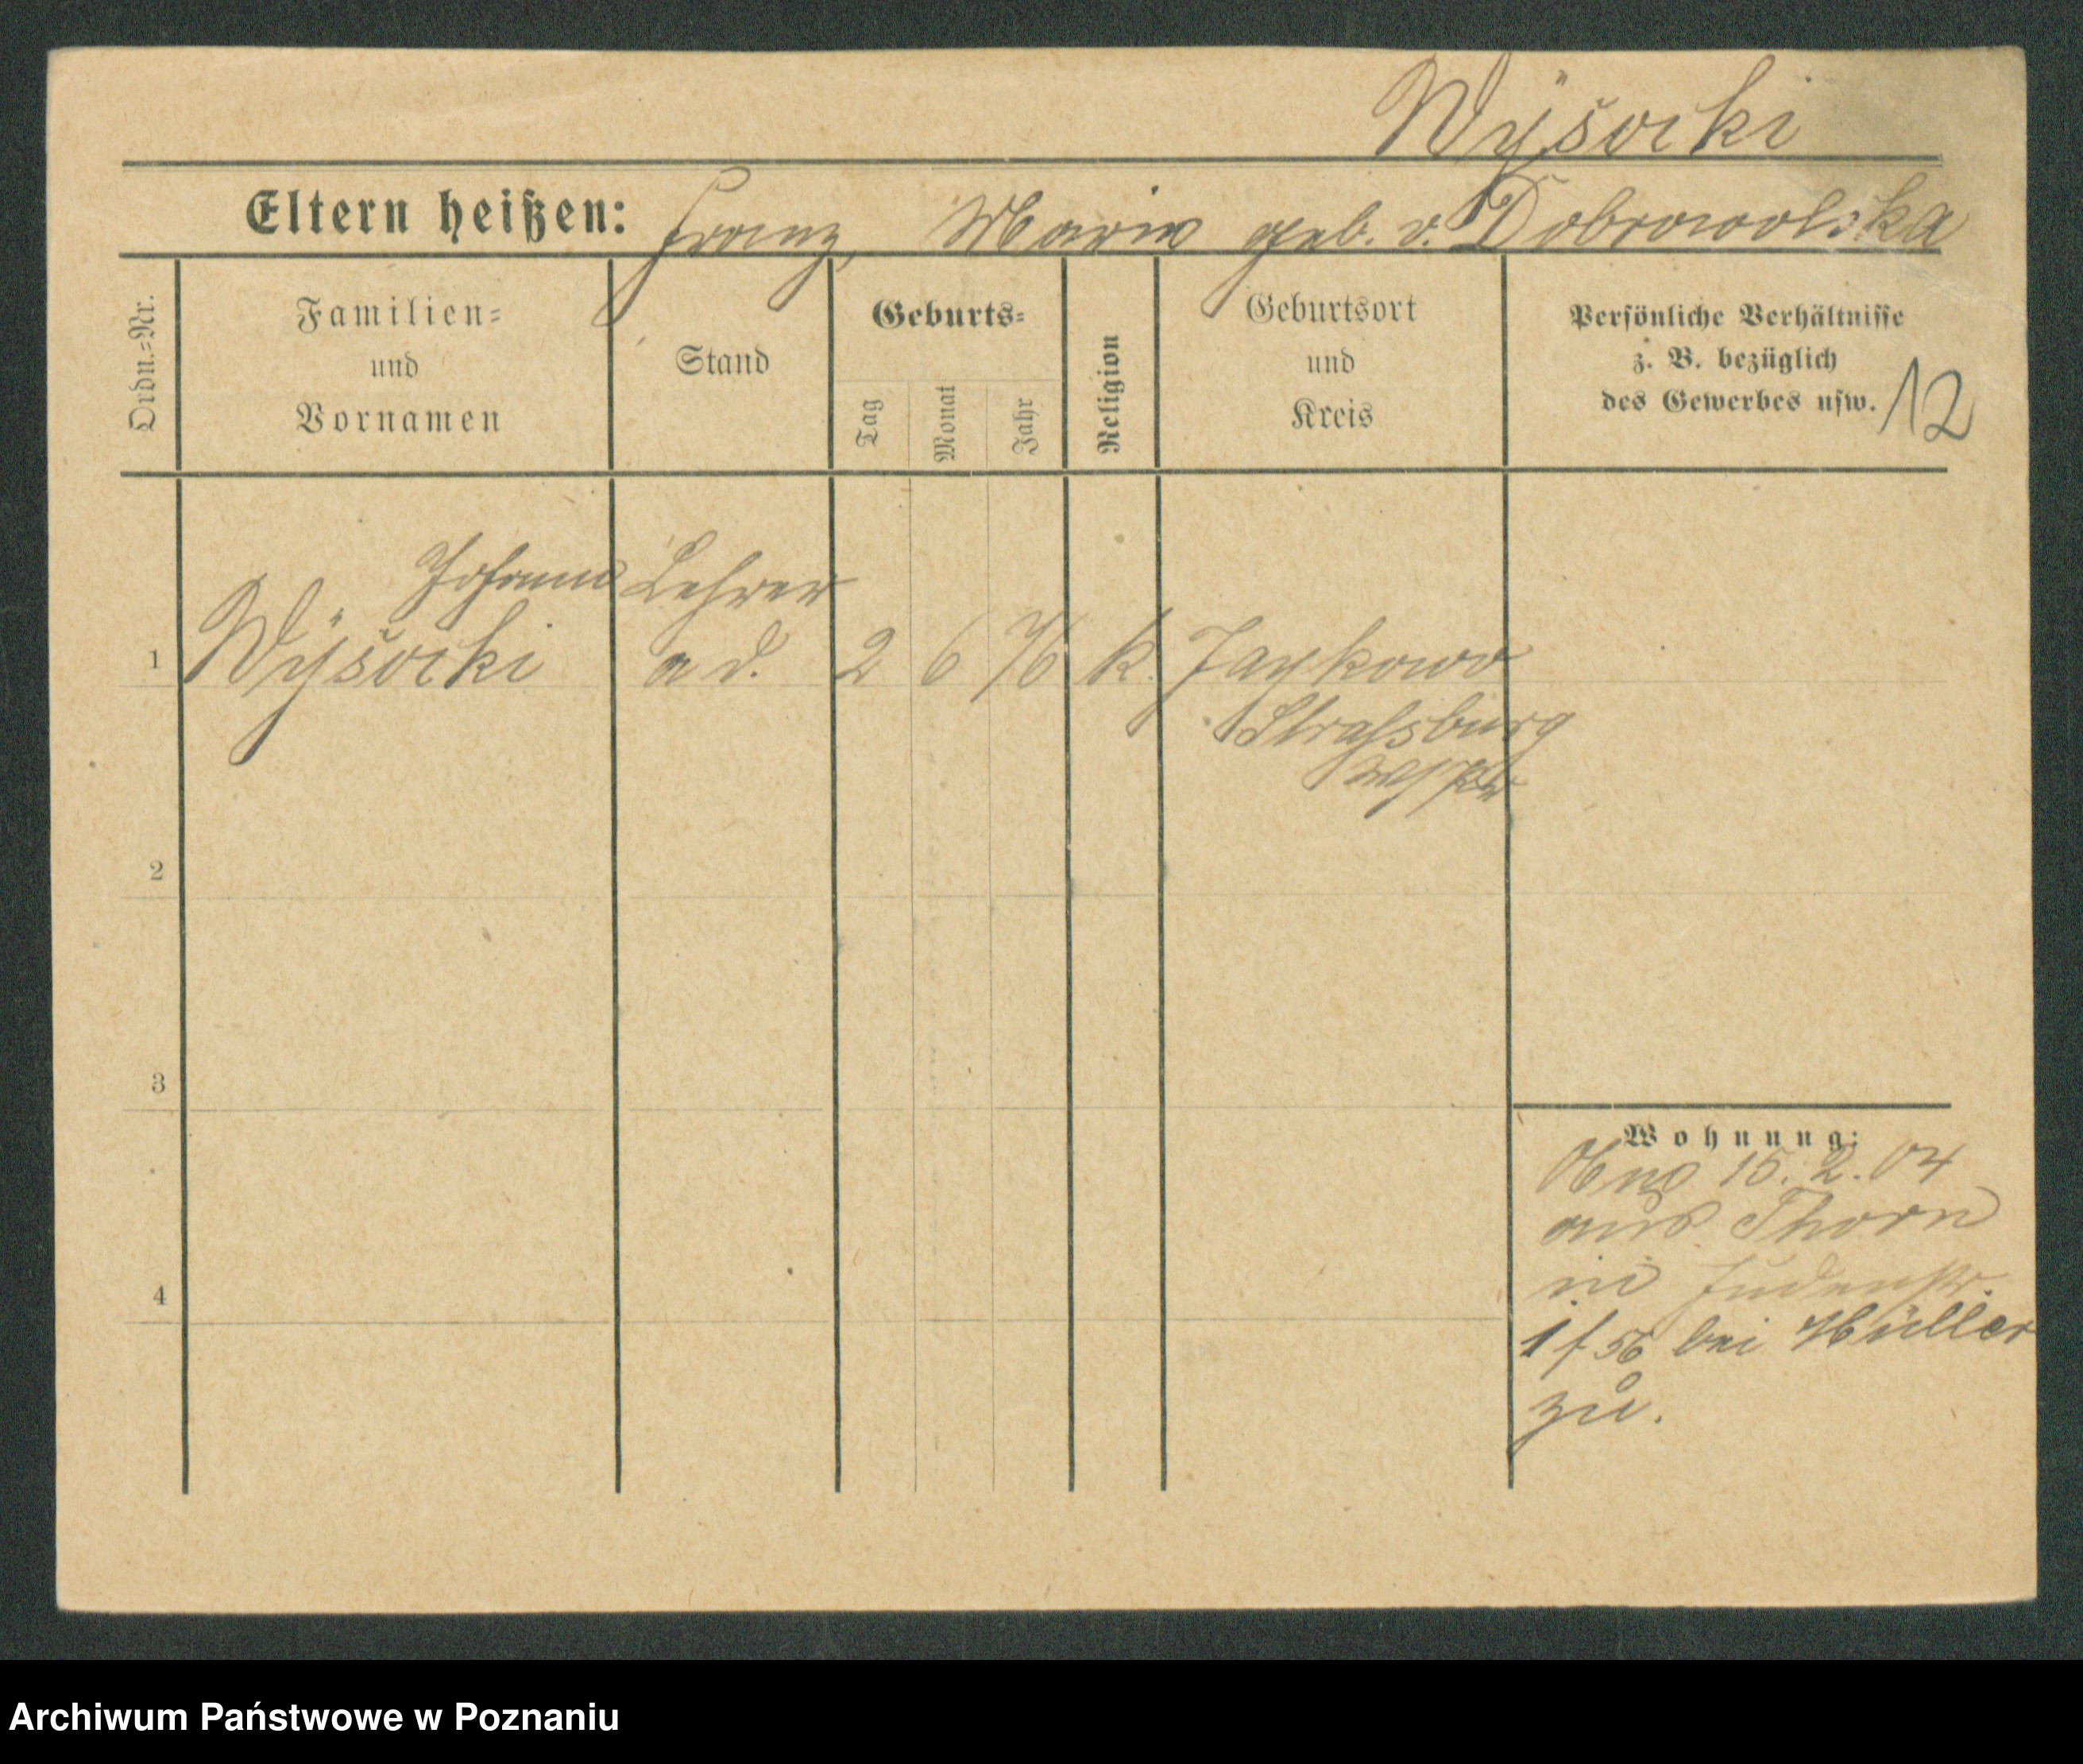 Wÿsocki
Eltern heißen: Franz, Maria geb. v. Dobrowolska
Ordn.=Nr.
Familien=
und
Vornamen
Stand
Geburts=
Tag
Monat
Jahr
Religion
Geburtsort
und
Kreis
Persönliche Verhältnisse
z. B. bezüglich
des Gewerbes usw.
12
Johann Lehrer
1 Wÿsocki a d. 2 6 76 k. Jaykowo
Strasburg
2
3
4
Wohnung:
15. 2. 04
aus Thorn
in Judenstr.
bei Müller
zu.
Archiwum Państwowe w Poznaniu